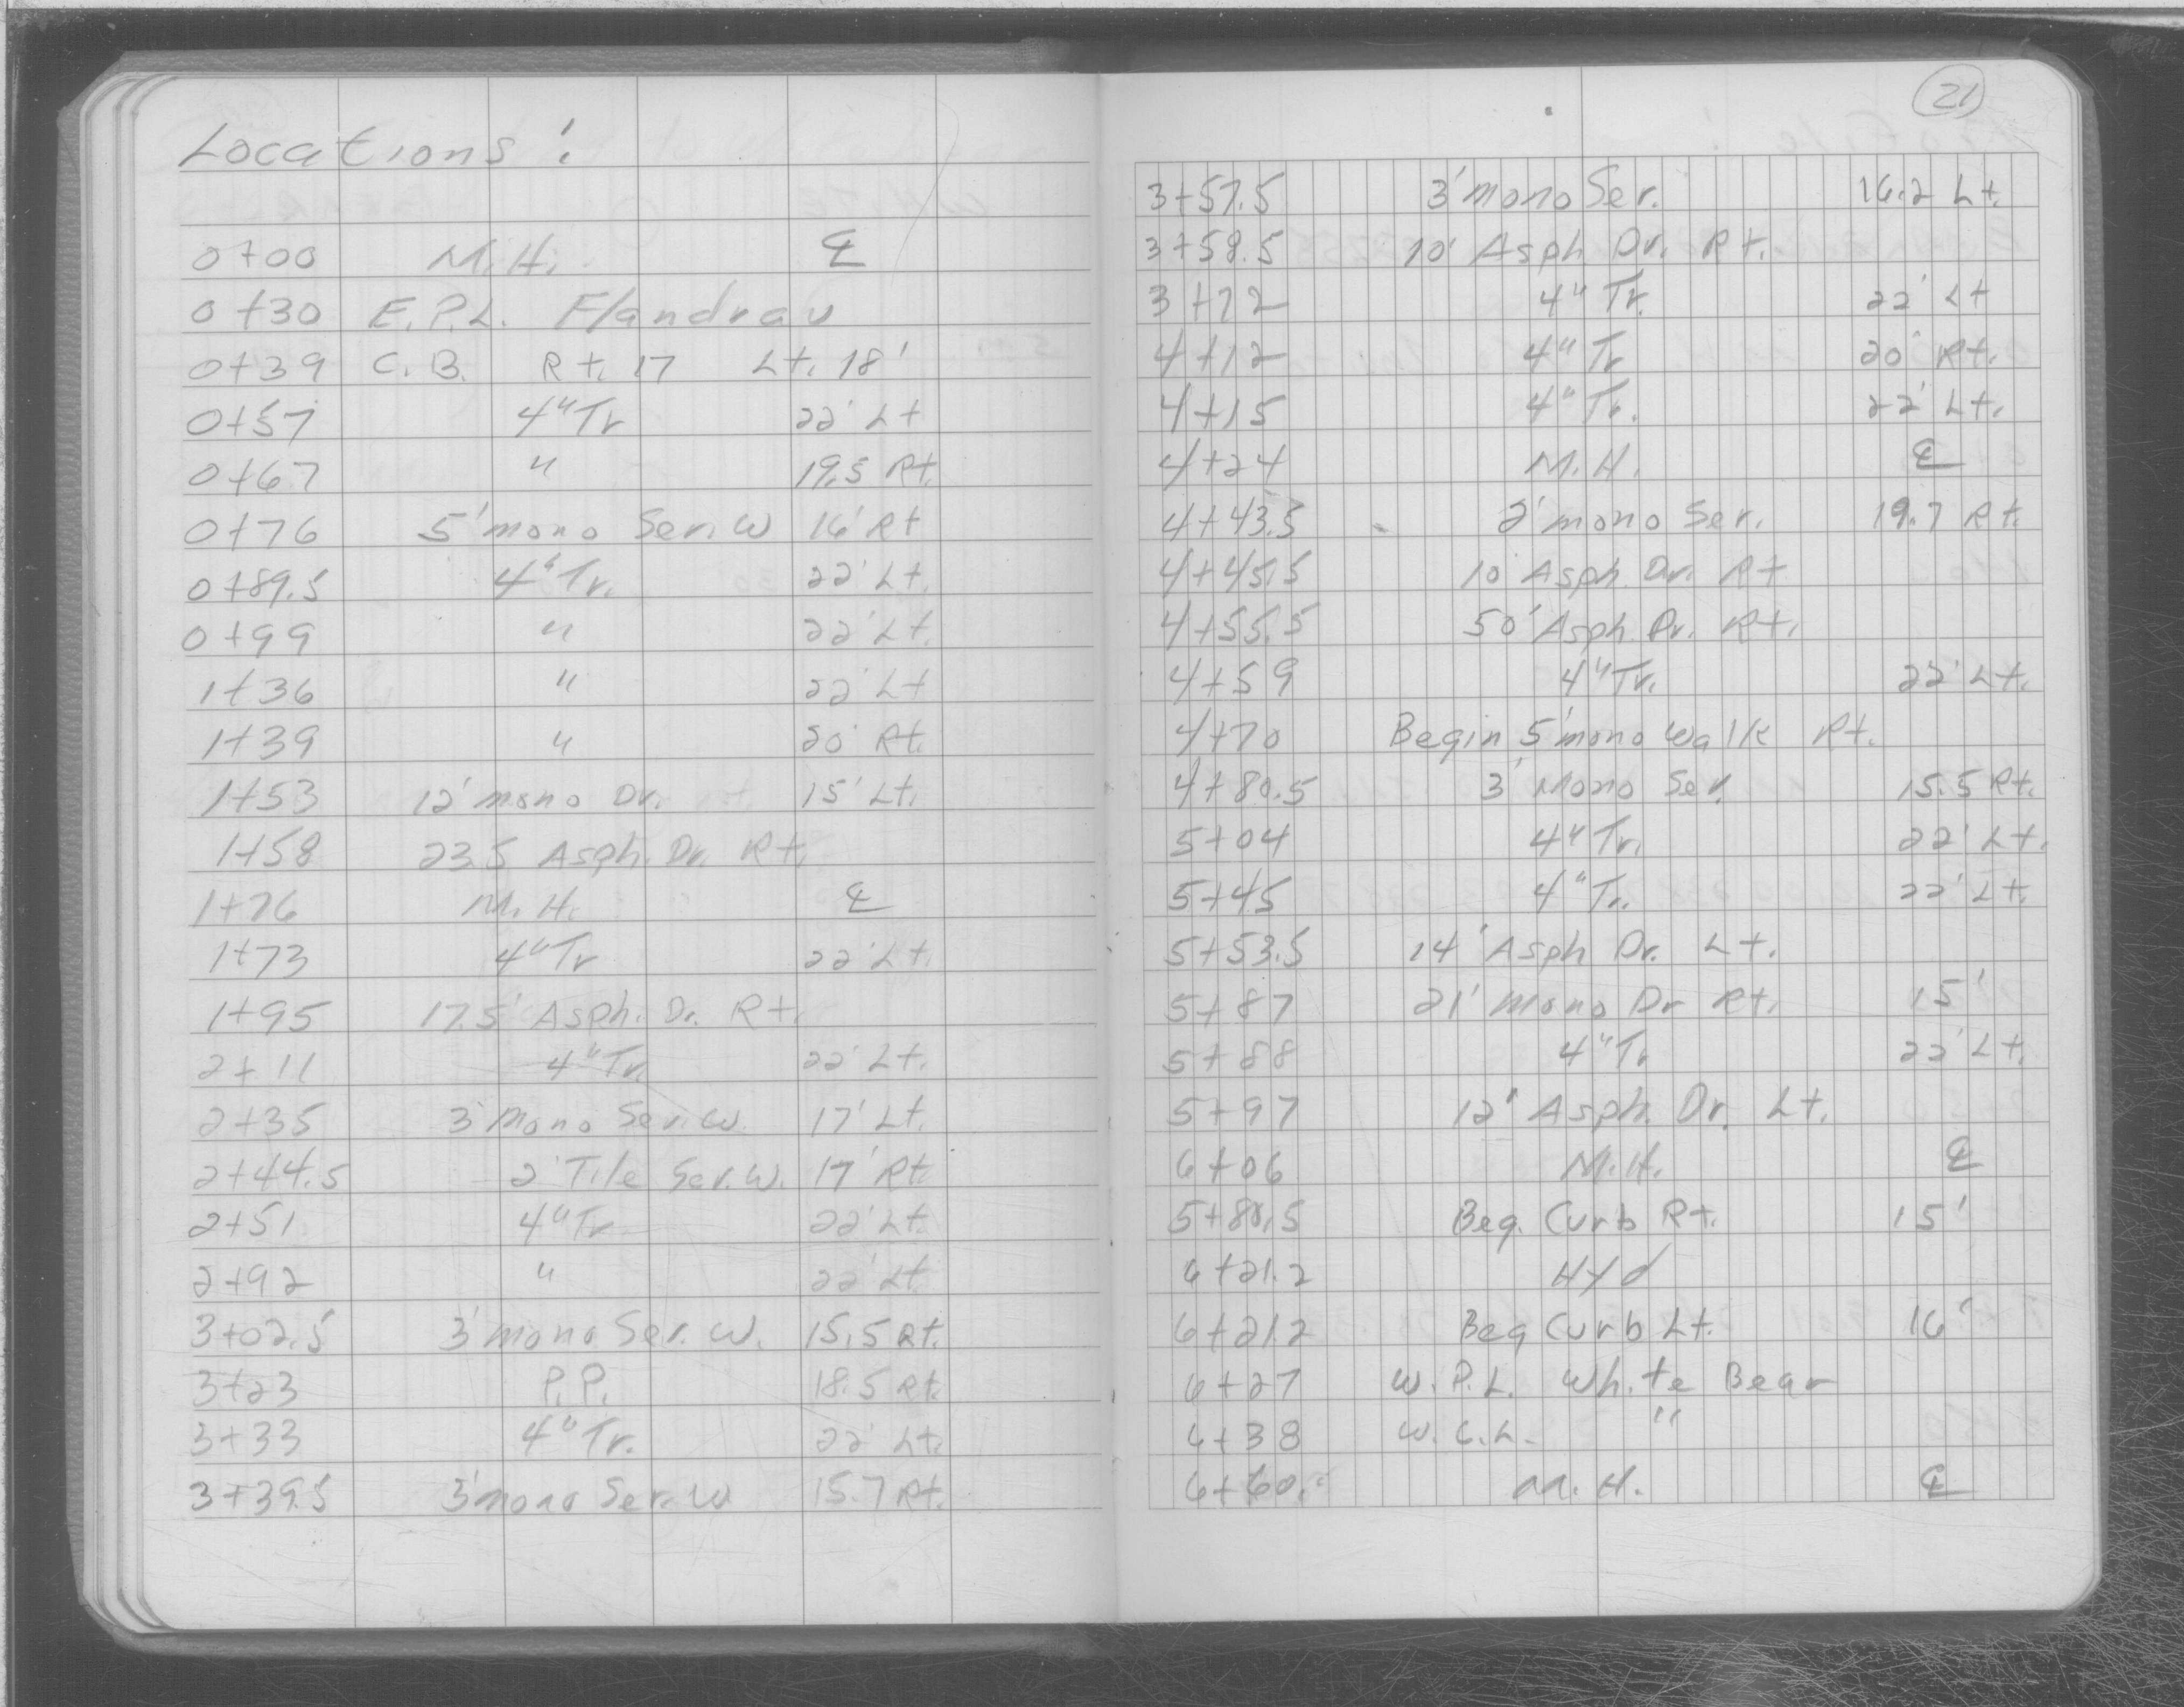 Locations :
0+00 M.H. ℄
0+30 E.P.L. Flandrau
0+39 C.B. Rt. 17 Lt. 18'
0+57 4" Tr 22' Lt
0+67 " 19.5 Rt.
0+76 5' mono Ser. W 16' Rt
0+89.5 4" Tr. 22' Lt.
0+99 " 22' Lt.
1+36 " 22' Lt
1+39 " 20' Rt.
1+53 12' mono Dr. 15' Lt.
1+58 23.5 Asph. Dr. Rt.
1+76 M.H. ℄
1+73 4" Tr 22' Lt.
1+95 17.5' Asph. Dr. Rt.
2+11 4" Tr. 22' Lt.
2+35 3' Mono Ser. W. 17' Lt.
2+44.5 2' Tile Ser. W. 17' Rt.
2+51 4" Tr 22' Lt.
2+92 " 22' Lt.
3+02.5 3' mono Ser. W. 15.5 Rt.
3+23 P.P. 18.5 Rt.
3+33 4" Tr. 22' Lt.
3+39.5 3' mono Ser. W 15.7 Rt.
21
3+57.5 3' mono Ser. 16.2 Lt.
3+58.5 10' Asph Dr. Rt.
3+72 4" Tr. 22' Lt
4+12 4" Tr 20' Rt.
4+15 4" Tr. 22' Lt.
4+24 M.H. ℄
4+43.5 2' mono Ser. 19.7 Rt.
4+45.5 10' Asph. Dr. Rt
4+55.5 50' Asph. Dr. Rt.
4+59 4" Tr. 22' Lt.
4+70 Begin 5' mono Walk Rt.
4+80.5 3' Mono Ser. 15.5 Rt.
5+04 4" Tr. 22' Lt.
5+45 4" Tr. 22' Lt.
5+53.5 14' Asph Dr. Lt.
5+87 21' Mono Dr Rt. 15'
5+88 4" Tr 22' Lt.
5+97 12' Asph. Dr. Lt.
6+06 M.H. ℄
Beg. Curb Rt. 15'
6+21.2 Hyd
6+21.2 Beg Curb Lt. 16'
6+27 W.P.L. White Bear
6+38 W.C.L. "
6+60. M.H. ℄